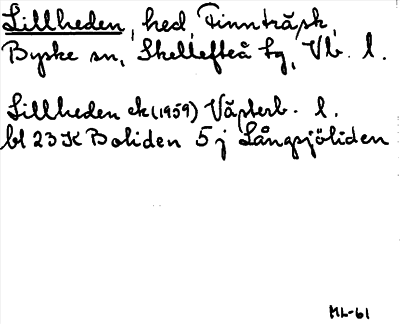 Lillheden, hed, Finnträsk,
Byske sn, Skellefteå tg, Vb. l.
Lillheden ek (1959) Västerb. l.
bl 23 K Boliden 5 j Långsjöliden
ML-61